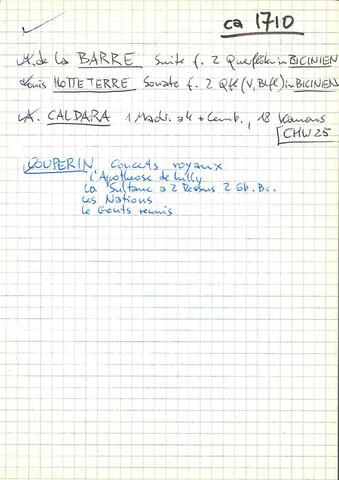 ca 1710
A. de la BARRE Suite f. 2 Querflöten in BICINIEN
Louis HOTTETERRE Sonate f. 2 Qfl (V, Blfl) in BICINIEN
A. CALDARA 1 Madr. + Cemb., 18 Kanons
CHW 25
COUPERIN, Concerts royaux
L'Apotheose de Lully
La Sultane a 2 Dessus 2 Gb. Bc.
Les Nations
Le Gouts reunis